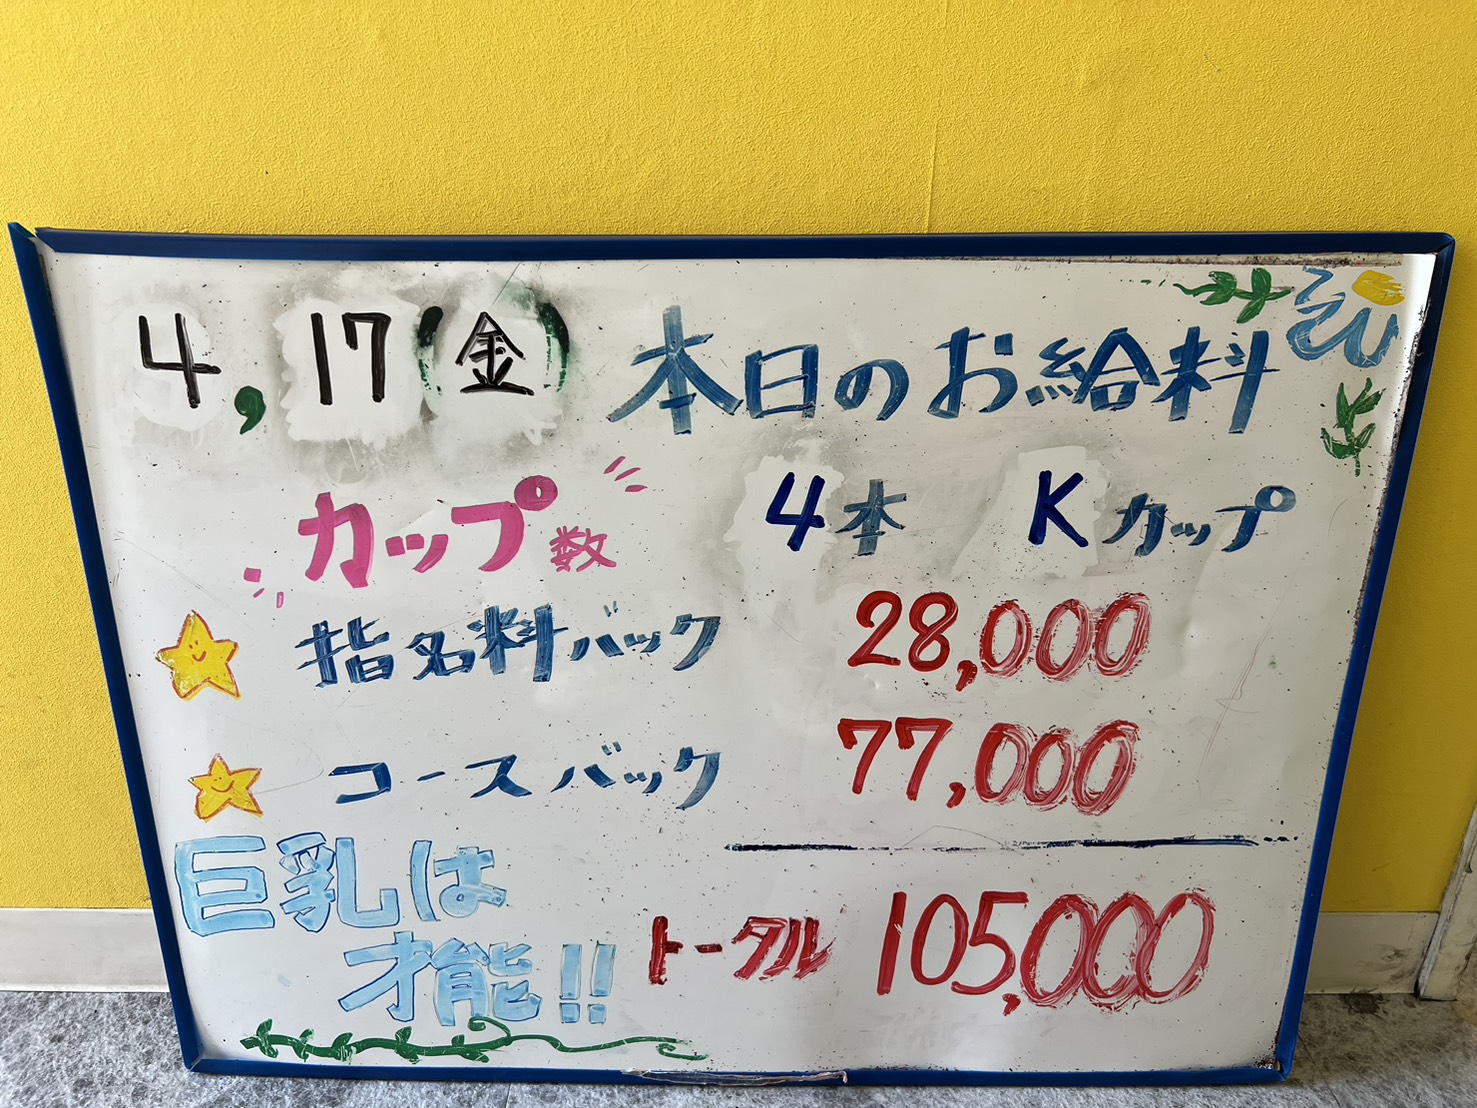 4,17(金) 本日のお給料
カップ数 4本 Kカップ
指名料バック 28,000
コースバック 77,000
巨乳は
才能!!
トータル 105,000